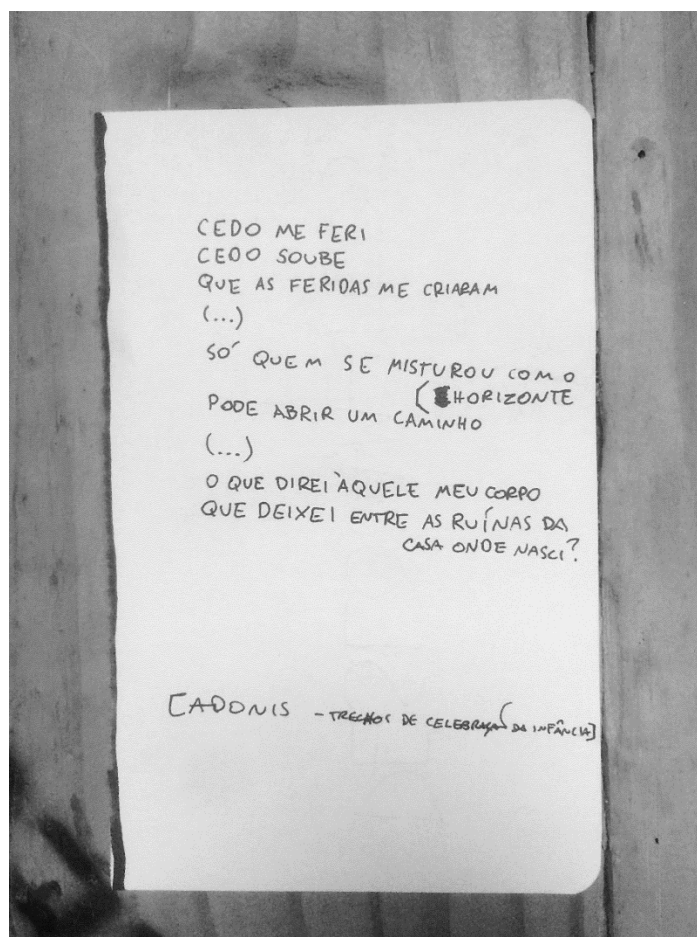 CEDO ME FERI
CEDO SOUBE
QUE AS FERIDAS ME CRIARAM
(...)
SÓ QUEM SE MISTUROU COM O
(HORIZONTE
PODE ABRIR UM CAMINHO
(...)
O QUE DIREI ÀQUELE MEU CORPO
QUE DEIXEI ENTRE AS RUÍNAS DA
CASA ONDE NASCI?
[ADONIS - TRECHOS DE CELEBRAÇÃO DA INFÂNCIA]